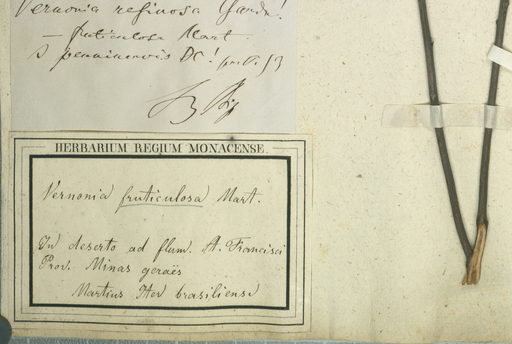 Vernonia resinosa Gardn!
— fruticulosa Mart.
DC!
HERBARIUM REGIUM MONACENSE.
Vernonia fruticulosa Mart.
In deserto ad flum. S. Francisci
Prov. Minas geraës
Martius Iter brasiliense